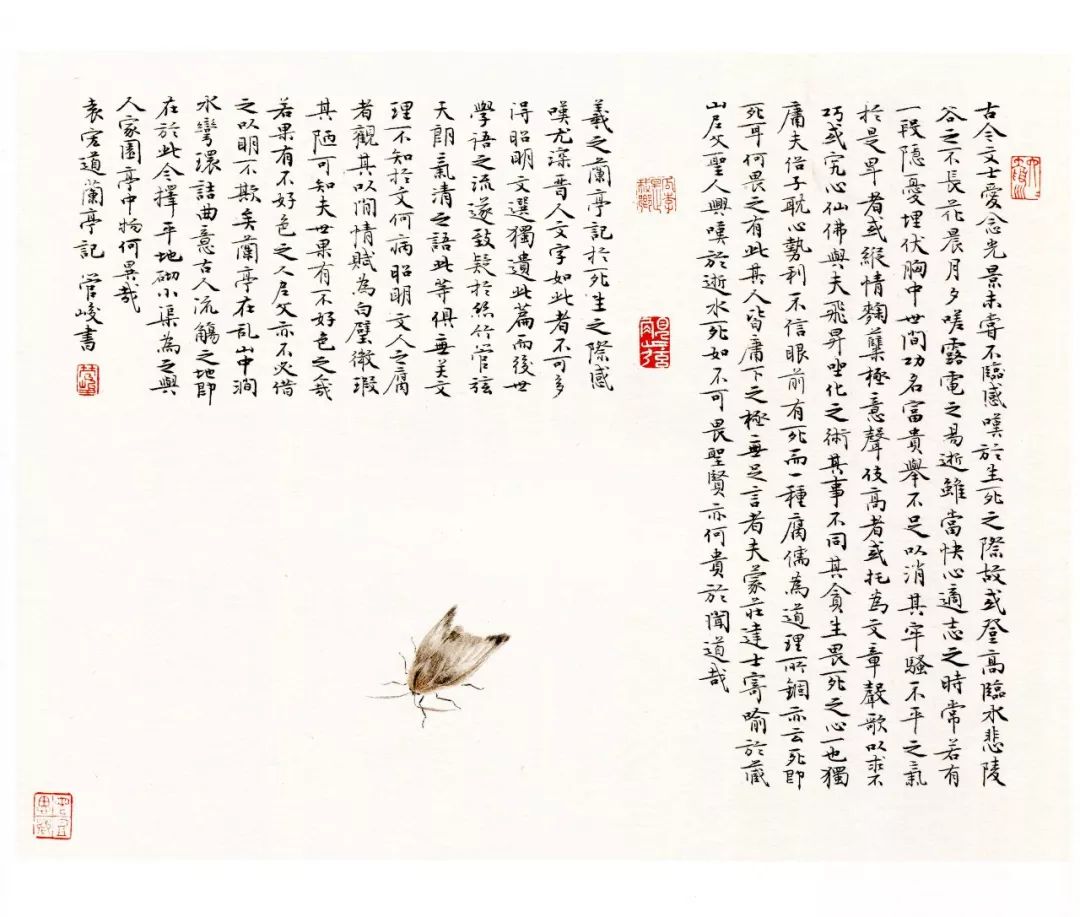 古今文士愛念光景未嘗不臨感嘆於生死之際故或登高臨水悲陵
谷之不長花晨月夕嗟露電之易逝雖當快心適志之時常若有
一段隱憂埋伏胸中世間功名富貴舉不足以消其牢騷不平之氣
於是卑者或縱情麴蘗極意聲伎高者或托為文章聲歌以求不
朽或究心仙佛與夫飛昇坐化之術其事不同其貪生畏死之心一也獨
庸夫俗子耽心勢利不信眼前有死而一種腐儒為道理所錮亦云死即
死耳何畏之有此其人皆庸下之極無足言者夫蒙莊達士寄喻於藏
山尼父聖人興嘆於逝水死如不可畏聖賢亦何貴於聞道哉
羲之蘭亭記於死生之際感
嘆尤深晉人文字如此者不可多
得昭明文選獨遺此篇而後世
學語之流遂致疑於絲竹管弦
天朗氣清之語此等俱無关文
理不知於文何病昭明文人之腐
者觀其以閒情賦為白璧微瑕
其陋可知夫世果有不好色之哉
若果有不好色之人尼父亦不必借
之以明不欺矣蘭亭在乱山中澗
水彎環詰曲意古人流觴之地即
在於此今擇平地砌小渠為之與
人家園亭中物何異哉
袁宏道蘭亭記 管峻書